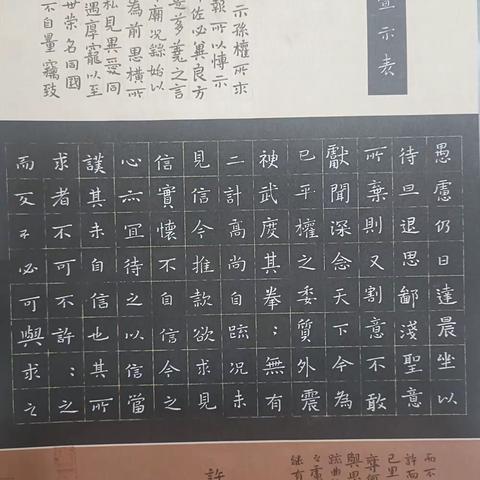 宣示表
示孫權所求
報所以慱示
佐必冀良方
芻蕘之言
廟況繇始以
為前恩橫所
私見異愛同
遇厚寵以至
世榮名同國
不自量竊致
愚慮仍日達晨坐以
待旦退思鄙淺聖意
所棄則又割意不敢
獻聞深念天下今為
已平權之委質外震
神武度其拳：無有
二計高尚自疏況未
見信今推款欲求見
信實懷不自信今之
心亦宜待之以信當
護其未自信也其所
求者不可不許：之
而反不必可與求之
而不
許而
許